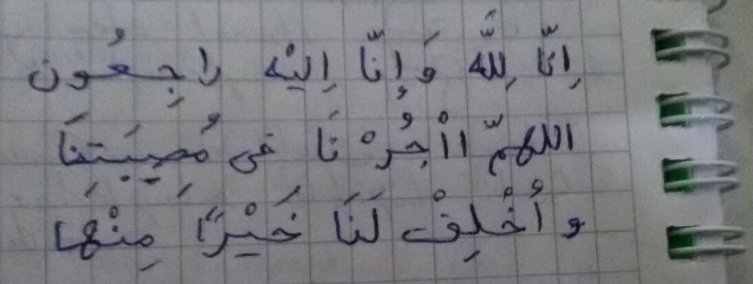 اِنَّا لِلّٰهِ وَاِنَّا اِلَيْهِ رَاجِعُونَ
اللهمّ اأْجُرْنَا فى مُصِيبَتِنَا
وأَخْلِفْ لَنَا خَيْرًا مِنْهَا